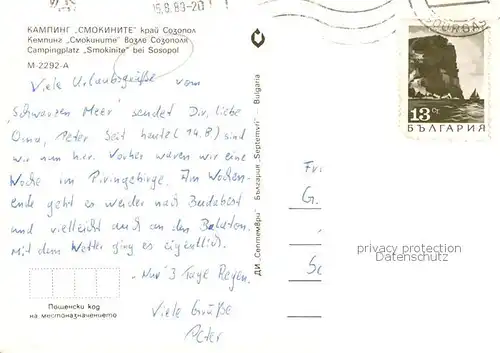 15.8.89-
КАМПИНГ "СМОКИНИТЕ" край Созопол
Кемпинг "Смокините" возле Созополя
Campingplatz "Smokinite" bei Sosopol
М-2292-А
Viele Urlaubsgrüße vom
"Schwarzen Meer" sendet Dir, liebe
Oma, Peter. Seit heute (14.8) sind
wir nun hier. Vorher waren wir eine
Woche im Piringebirge. Am Wochen-
ende geht es weiter nach Budabest
und vielleicht auch an den Balaton.
Mit dem Wetter ging es eigentlich.
Nur 3 Tage Regen.
Viele Grüße
Peter
Пощенски код
на местоназначението
ДИ "Септември" България "Septemvri" Bulgaria
BOURGAS
13 ст
БЪЛГАРИЯ
Fr
G.
privacy protection
Datenschutz